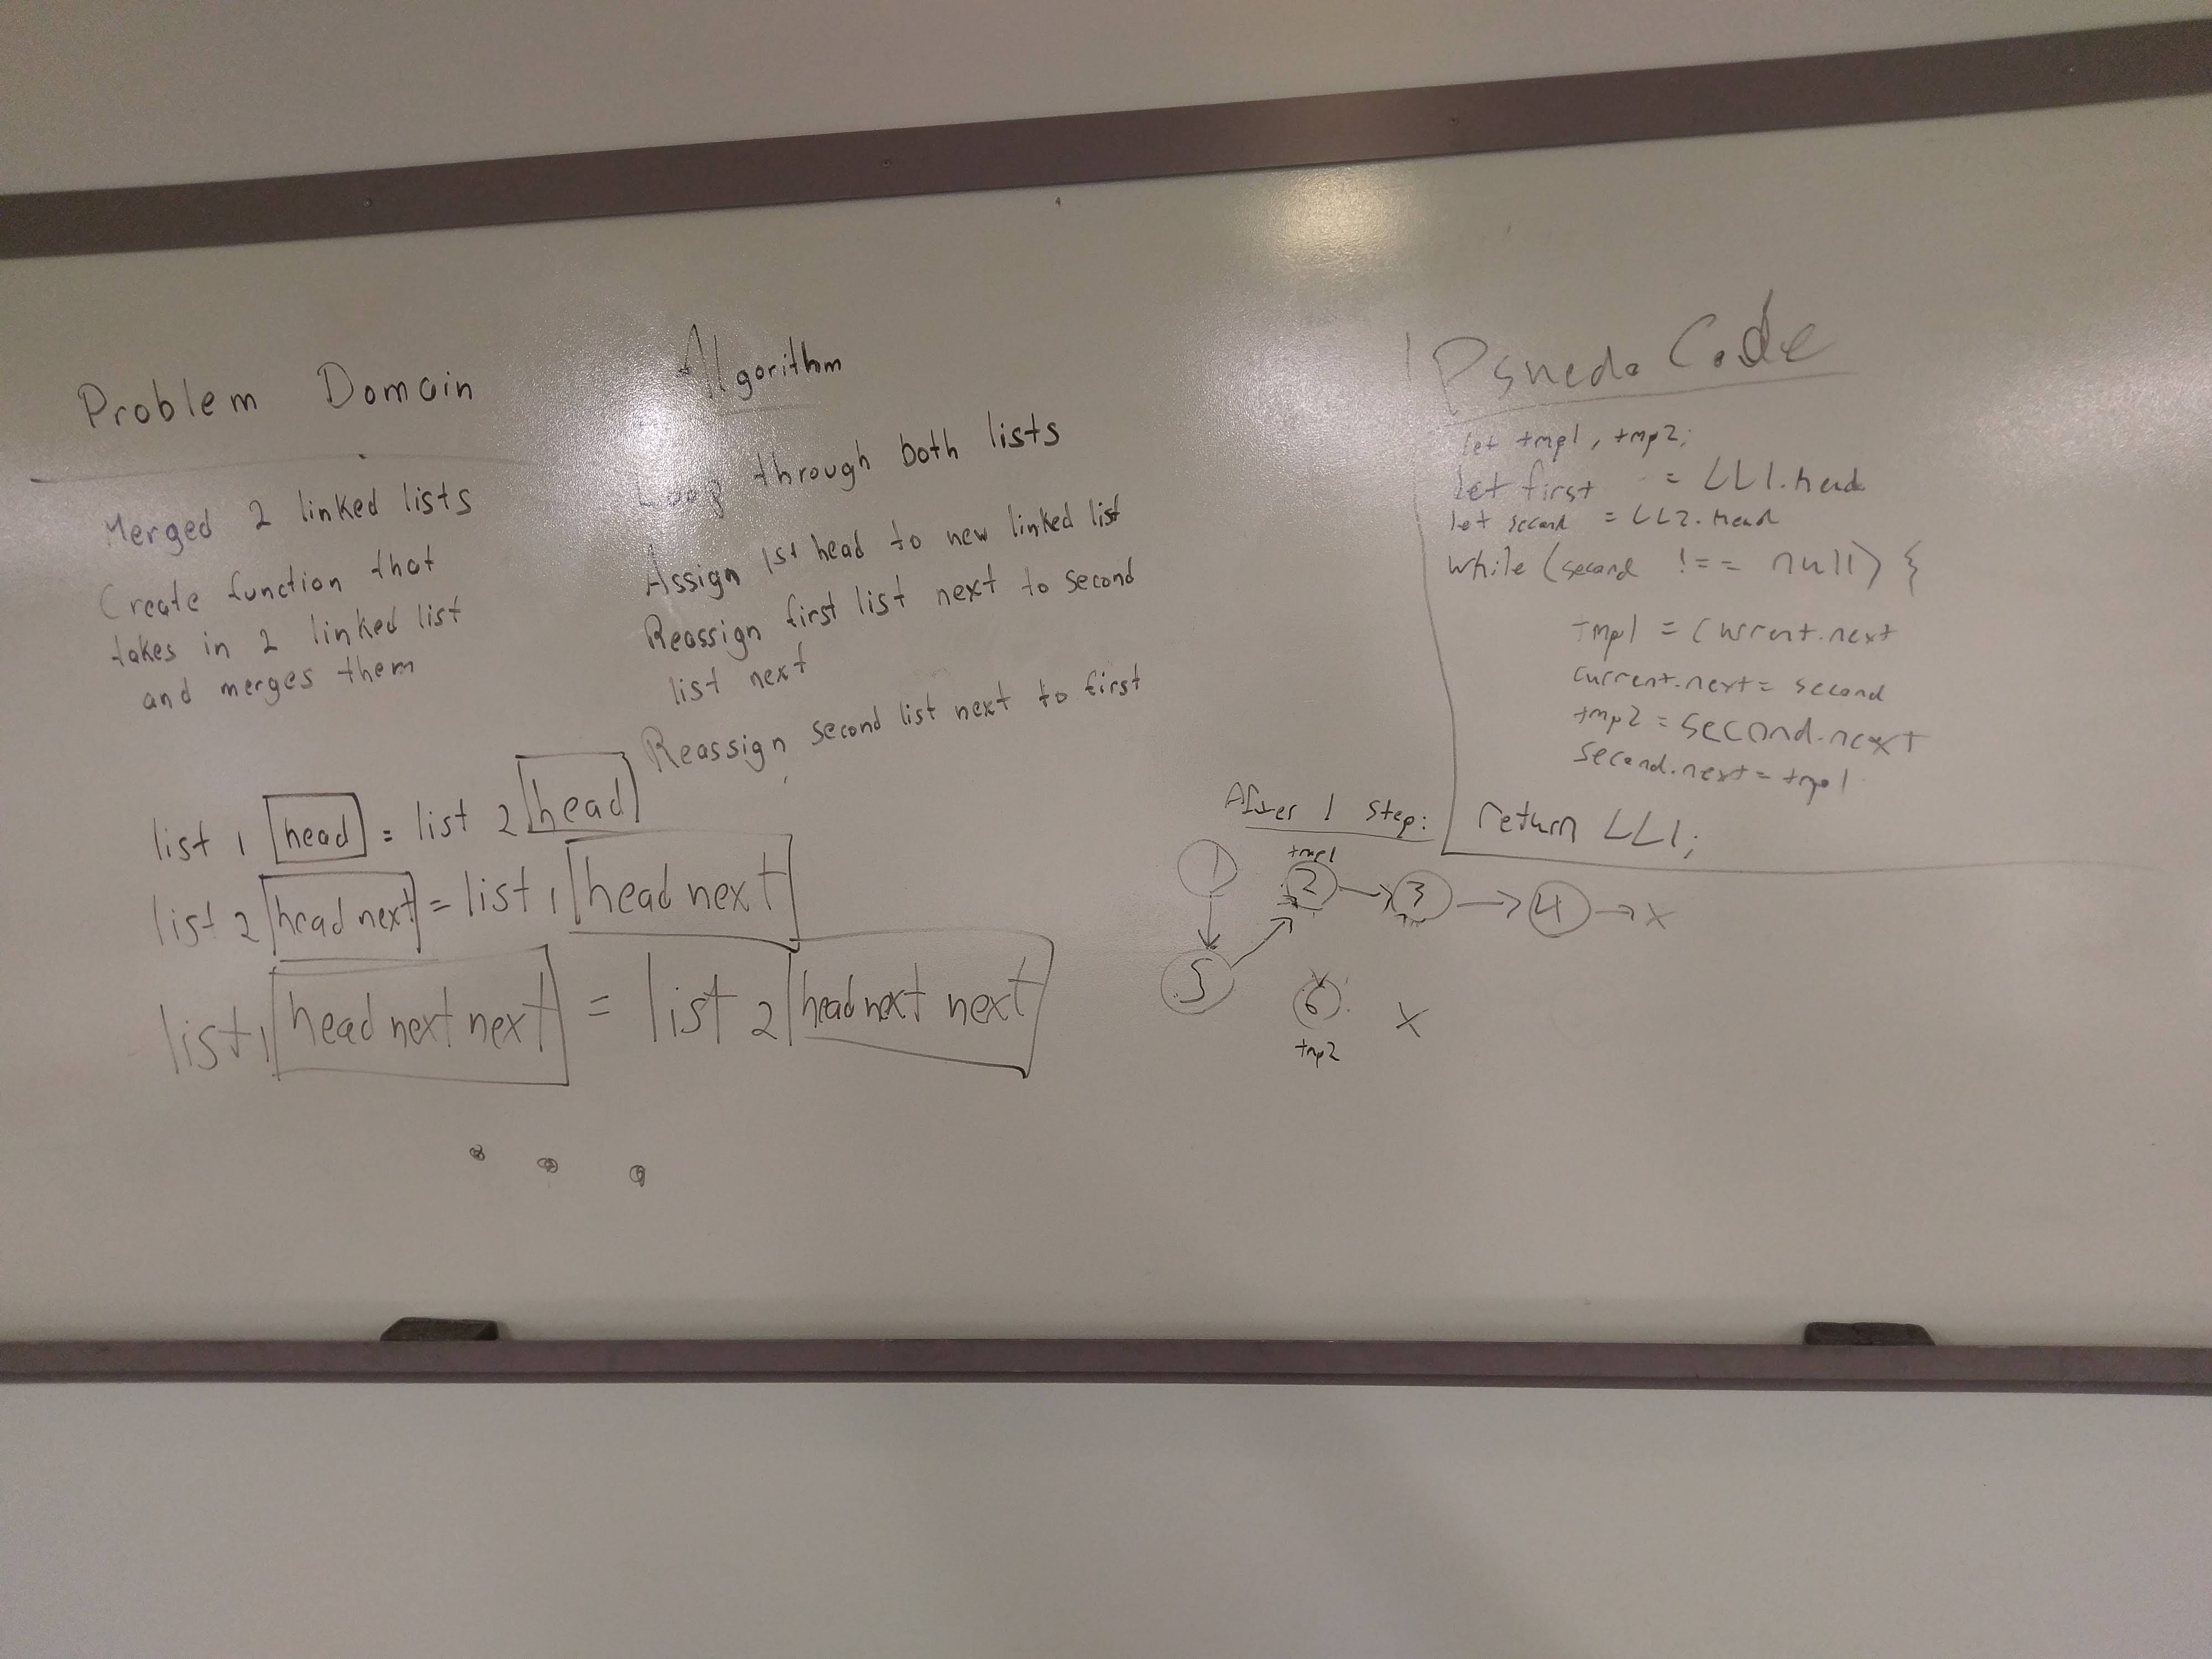 Problem Domain
Merged 2 linked lists
Create function that
takes in 2 linked list
and merges them
Algorithm
Loop through both lists
Assign 1st head to new linked list
Reassign first list next to second
list next
Reassign second list next to first
list 1 head = list 2 head
list 2 head next = list 1 head next
list 1 head next next = list 2 head next next
Psuedo Code
let tmp1, tmp2;
let first = LL1.head
let second = LL2.head
while (second !== null) {
tmp1 = current.next
current.next = second
tmp2 = second.next
second.next = tmp1
return LL1;
After 1 step:
tmp1
1 2 3 4 x
5 6 x
tmp2